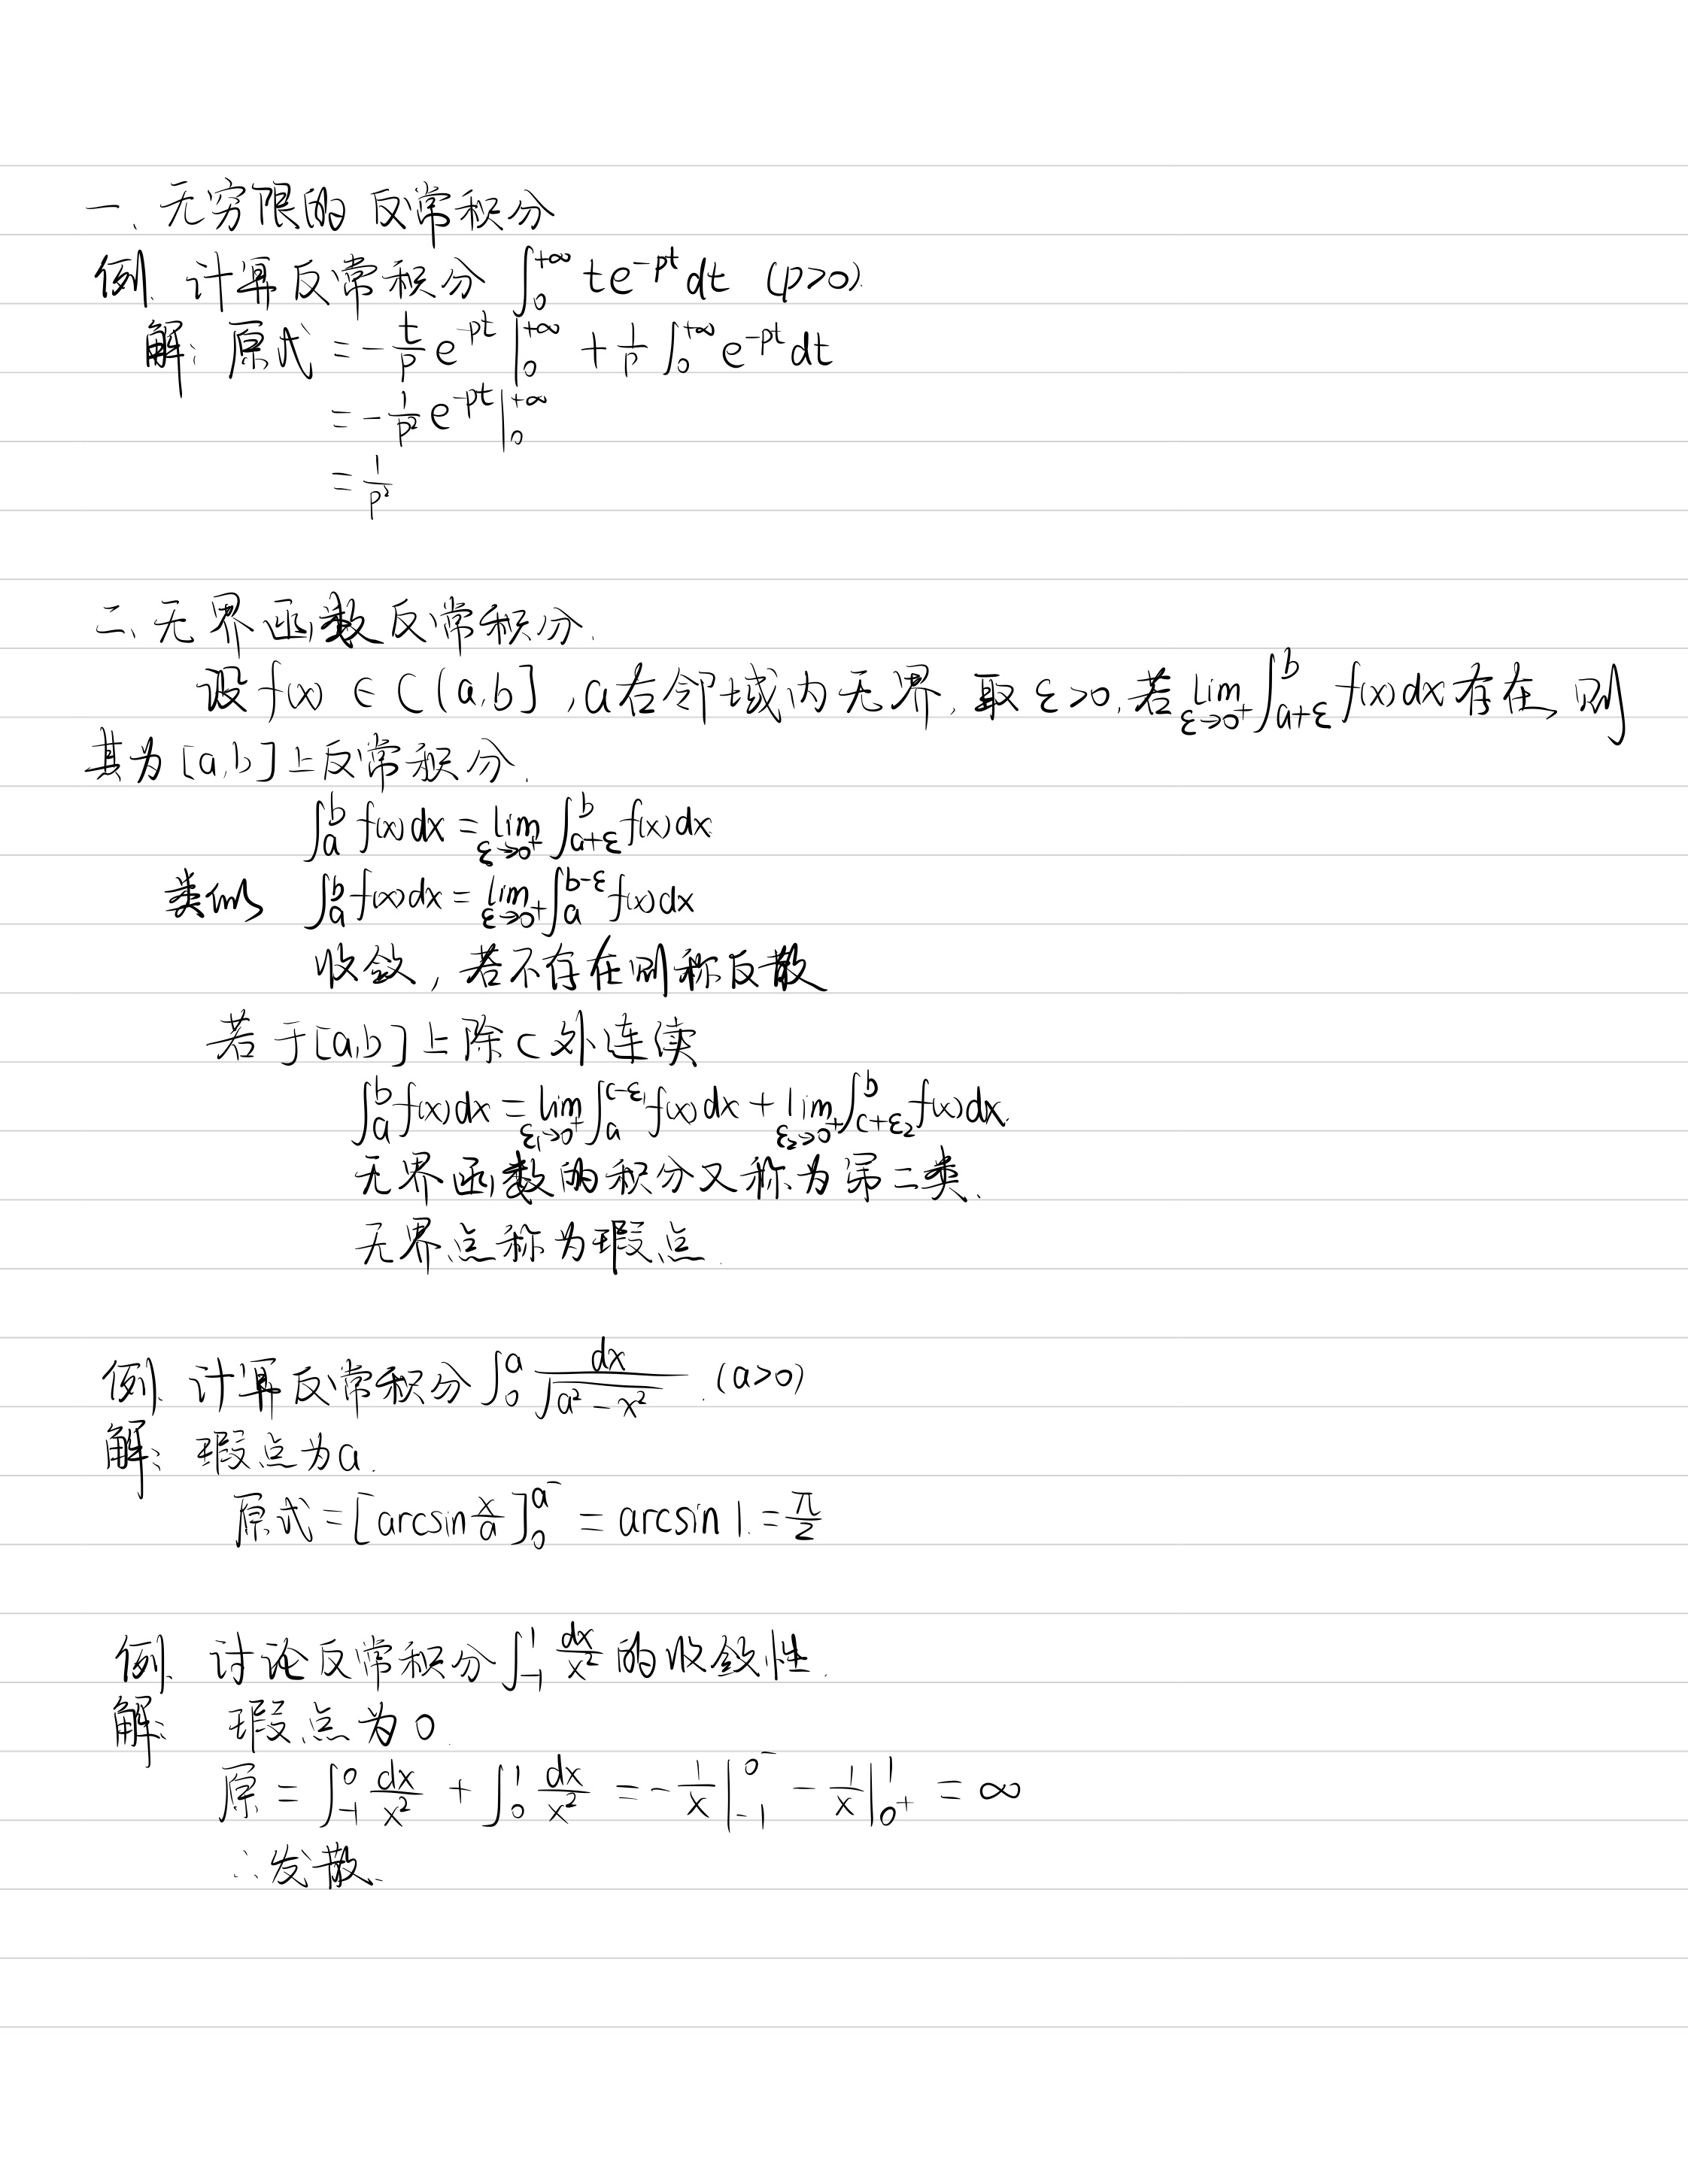 一、无穷限的反常积分
例. 计算反常积分 ∫₀^{+∞} te^{-pt} dt (p>0).
解: 原式 = -\frac{t}{p} e^{-pt} |₀^{+∞} + \frac{1}{p} ∫₀^{+∞} e^{-pt} dt
= -\frac{1}{p²} e^{-pt} |₀^{+∞}
= \frac{1}{p²}
二、无界函数反常积分.
设 f(x) ∈ C(a,b], a右邻域内无界, 取 ε>0, 若 \lim_{ε→0⁺} ∫_{a+ε}^{b} f(x)dx 存在, 则
其为[a,b]上反常积分.
∫_a^b f(x)dx = \lim_{ε→0⁺} ∫_{a+ε}^{b} f(x)dx
类似 ∫_a^b f(x)dx = \lim_{ε→0⁺} ∫_a^{b-ε} f(x)dx
收敛, 若不存在则称反散
若于[a,b]上除c外连续
∫_a^b f(x)dx = \lim_{ε₁→0⁺} ∫_a^{c-ε₁} f(x)dx + \lim_{ε₂→0⁺} ∫_{c+ε₂}^b f(x)dx.
无界函数的积分又称为第二类.
无界点称为瑕点.
例. 计算反常积分 ∫₀^a \frac{dx}{\sqrt{a²-x²}}. (a>0)
解: 瑕点为a.
原式 = [arcsin\frac{x}{a}]₀^{a⁻} = arcsin 1. = \frac{π}{2}
例. 讨论反常积分 ∫_{-1}^1 \frac{dx}{x²} 的收敛性.
解: 瑕点为0.
原 = ∫_{-1}^0 \frac{dx}{x²} + ∫_0^1 \frac{dx}{x²} = -\frac{1}{x} |_{-1}^{0⁻} - \frac{1}{x} |_{0⁺}^1 = ∞
∴发散.